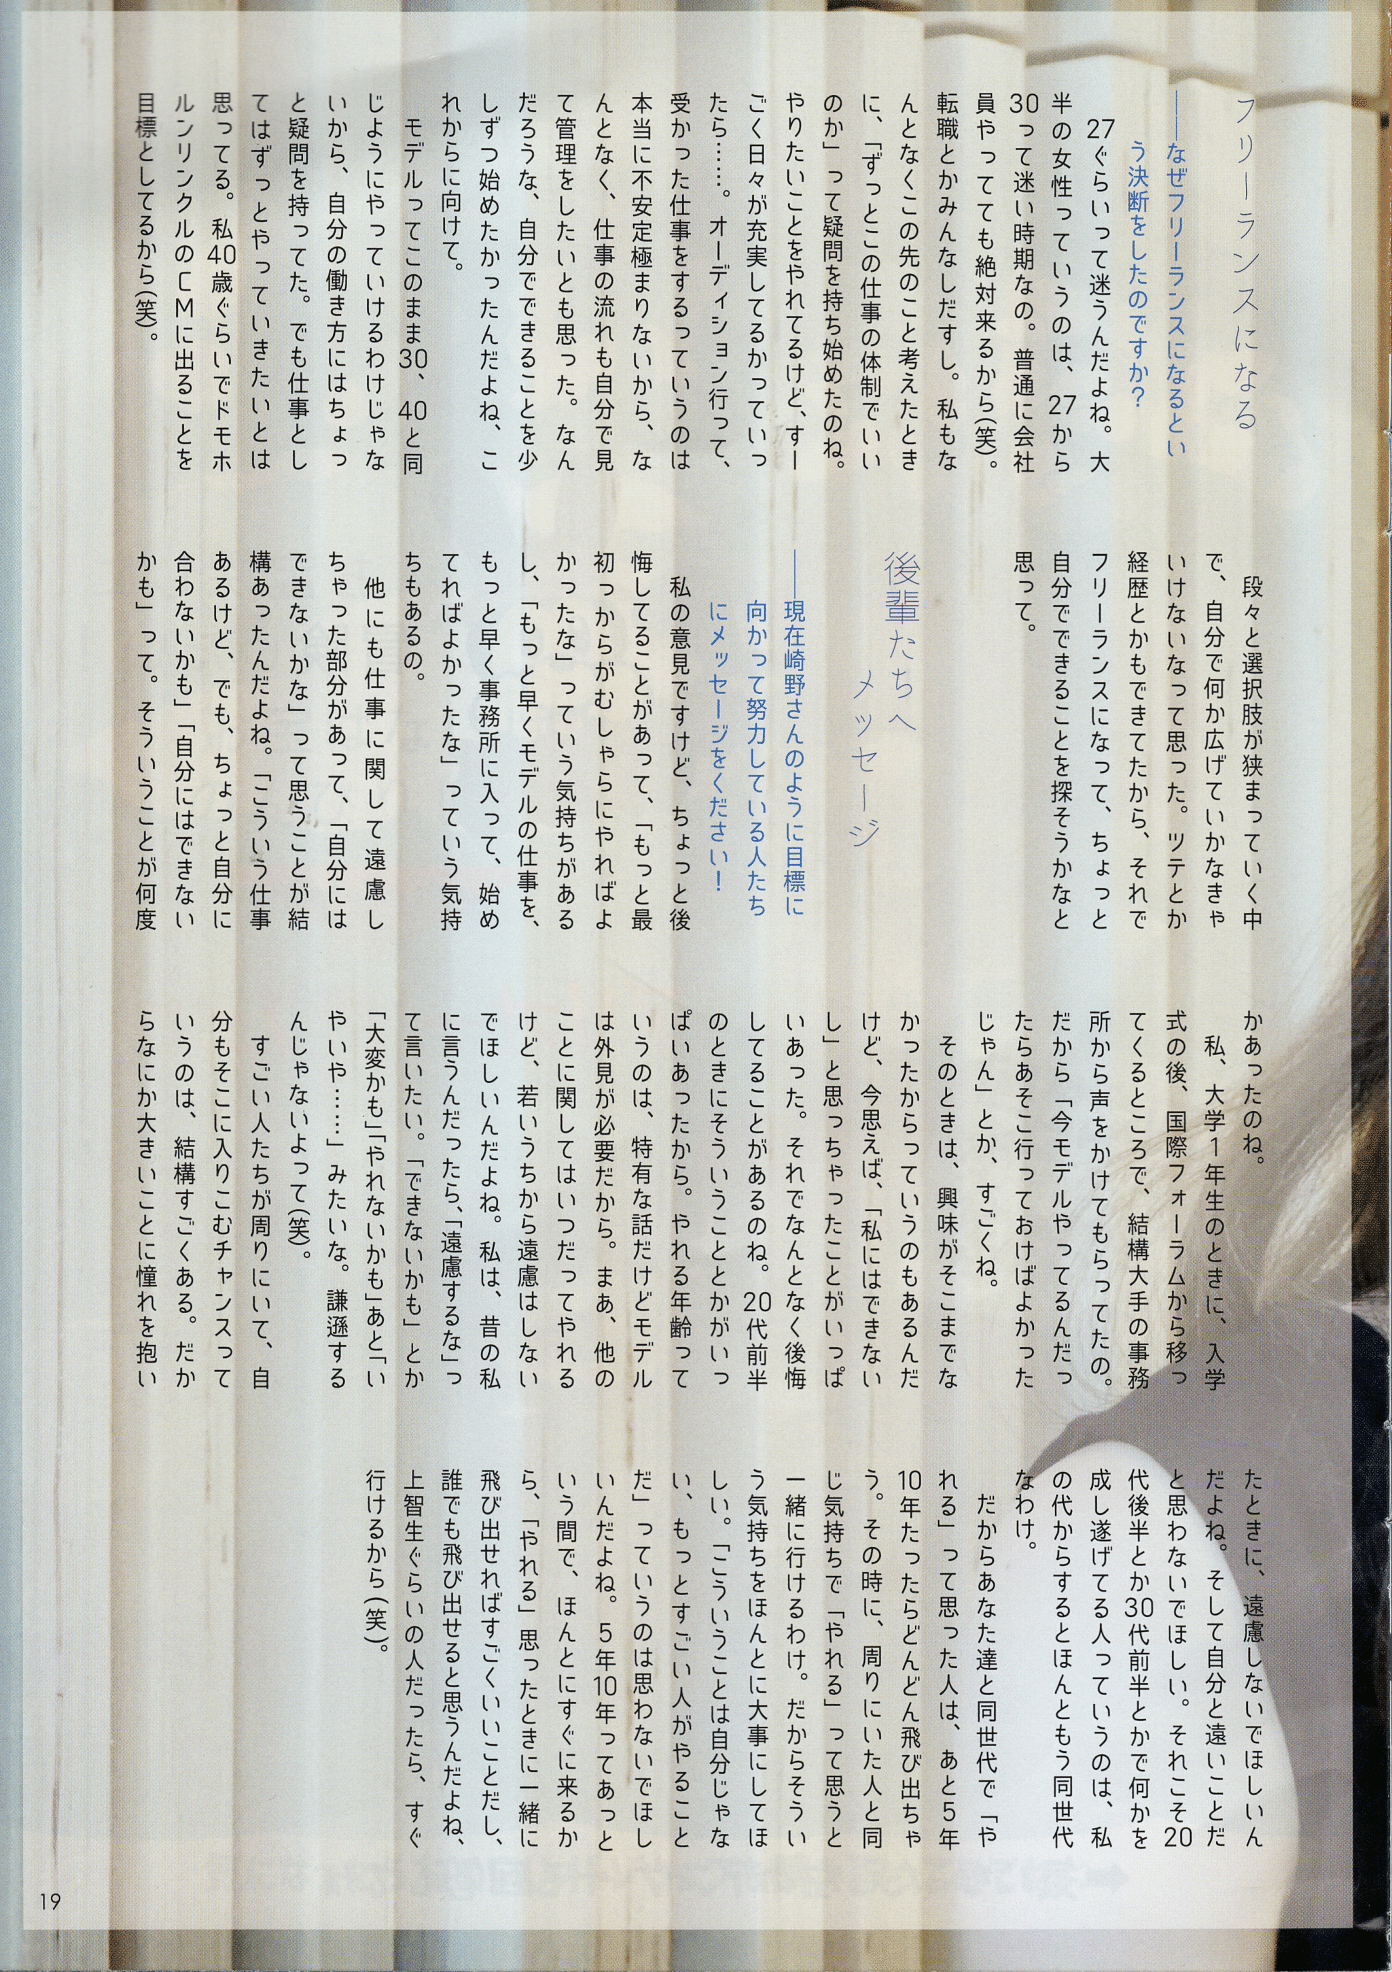 フリーランスになる
――なぜフリーランスになるとい
う決断をしたのですか？
27ぐらいって迷うんだよね。大
半の女性っていうのは、27から
30って迷い時期なの。普通に会社
員やってても絶対来るから(笑)。
転職とかみんなしだすし。私もな
んとなくこの先のこと考えたとき
に、「ずっとこの仕事の体制でいい
のか」って疑問を持ち始めたのね。
やりたいことをやれてるけど、すー
ごく日々が充実してるかっていっ
たら……。オーディション行って、
受かった仕事をするっていうのは
本当に不安定極まりないから、な
んとなく、仕事の流れも自分で見
て管理をしたいとも思った。なん
だろうな、自分でできることを少
しずつ始めたかったんだよね、こ
れからに向けて。
モデルってこのまま30、40と同
じようにやっていけるわけじゃな
いから、自分の働き方にはちょっ
と疑問を持ってた。でも仕事とし
てはずっとやっていきたいとは
思ってる。私40歳ぐらいでドモホ
ルンリンクルのCMに出ることを
目標としてるから(笑)。
段々と選択肢が狭まっていく中
で、自分で何か広げていかなきゃ
いけないなって思った。ツテとか
経歴とかもできてたから、それで
フリーランスになって、ちょっと
自分でできることを探そうかなと
思って。
後輩たちへ
メッセージ
――現在崎野さんのように目標に
向かって努力している人たち
にメッセージをください！
私の意見ですけど、ちょっと後
悔してることがあって、「もっと最
初っからがむしゃらにやればよ
かったな」っていう気持ちがある
し、「もっと早くモデルの仕事を、
もっと早く事務所に入って、始め
てればよかったな」っていう気持
ちもあるの。
他にも仕事に関して遠慮し
ちゃった部分があって、「自分には
できないかな」って思うことが結
構あったんだよね。「こういう仕事
あるけど、でも、ちょっと自分に
合わないかも」「自分にはできない
かも」って。そういうことが何度
かあったのね。
私、大学1年生のときに、入学
式の後、国際フォーラムから移っ
てくるところで、結構大手の事務
所から声をかけてもらってたの。
だから「今モデルやってるんだっ
たらあそこ行っておけばよかった
じゃん」とか、すごくね。
そのときは、興味がそこまでな
かったからっていうのもあるんだ
けど、今思えば、「私にはできない
し」と思っちゃったことがいっぱ
いあった。それでなんとなく後悔
してることがあるのね。20代前半
のときにそういうこととかがいっ
ぱいあったから。やれる年齢って
いうのは、特有な話だけどモデル
は外見が必要だから。まあ、他の
ことに関してはいつだってやれる
けど、若いうちから遠慮はしない
でほしいんだよね。私は、昔の私
に言うんだったら、「遠慮するな」っ
て言いたい。「できないかも」とか
「大変かも」「やれないかも」あと「い
やいや……」みたいな。謙遜する
んじゃないよって(笑)。
すごい人たちが周りにいて、自
分もそこに入りこむチャンスって
いうのは、結構すごくある。だか
らなにか大きいことに憧れを抱い
たときに、遠慮しないでほしいん
だよね。そして自分と遠いことだ
と思わないでほしい。それこそ20
代後半とか30代前半とかで何かを
成し遂げてる人っていうのは、私
の代からするとほんともう同世代
なわけ。
だからあなた達と同世代で「や
れる」って思った人は、あと5年
10年たったらどんどん飛び出ちゃ
う。その時に、周りにいた人と同
じ気持ちで「やれる」って思うと
一緒に行けるわけ。だからそうい
う気持ちをほんとに大事にしてほ
しい。「こういうことは自分じゃな
い、もっとすごい人がやること
だ」っていうのは思わないでほし
いんだよね。5年10年ってあっと
いう間で、ほんとにすぐに来るか
ら、「やれる」思ったときに一緒に
飛び出せればすごくいいことだし、
誰でも飛び出せると思うんだよね、
上智生ぐらいの人だったら、すぐ
行けるから(笑)。
19